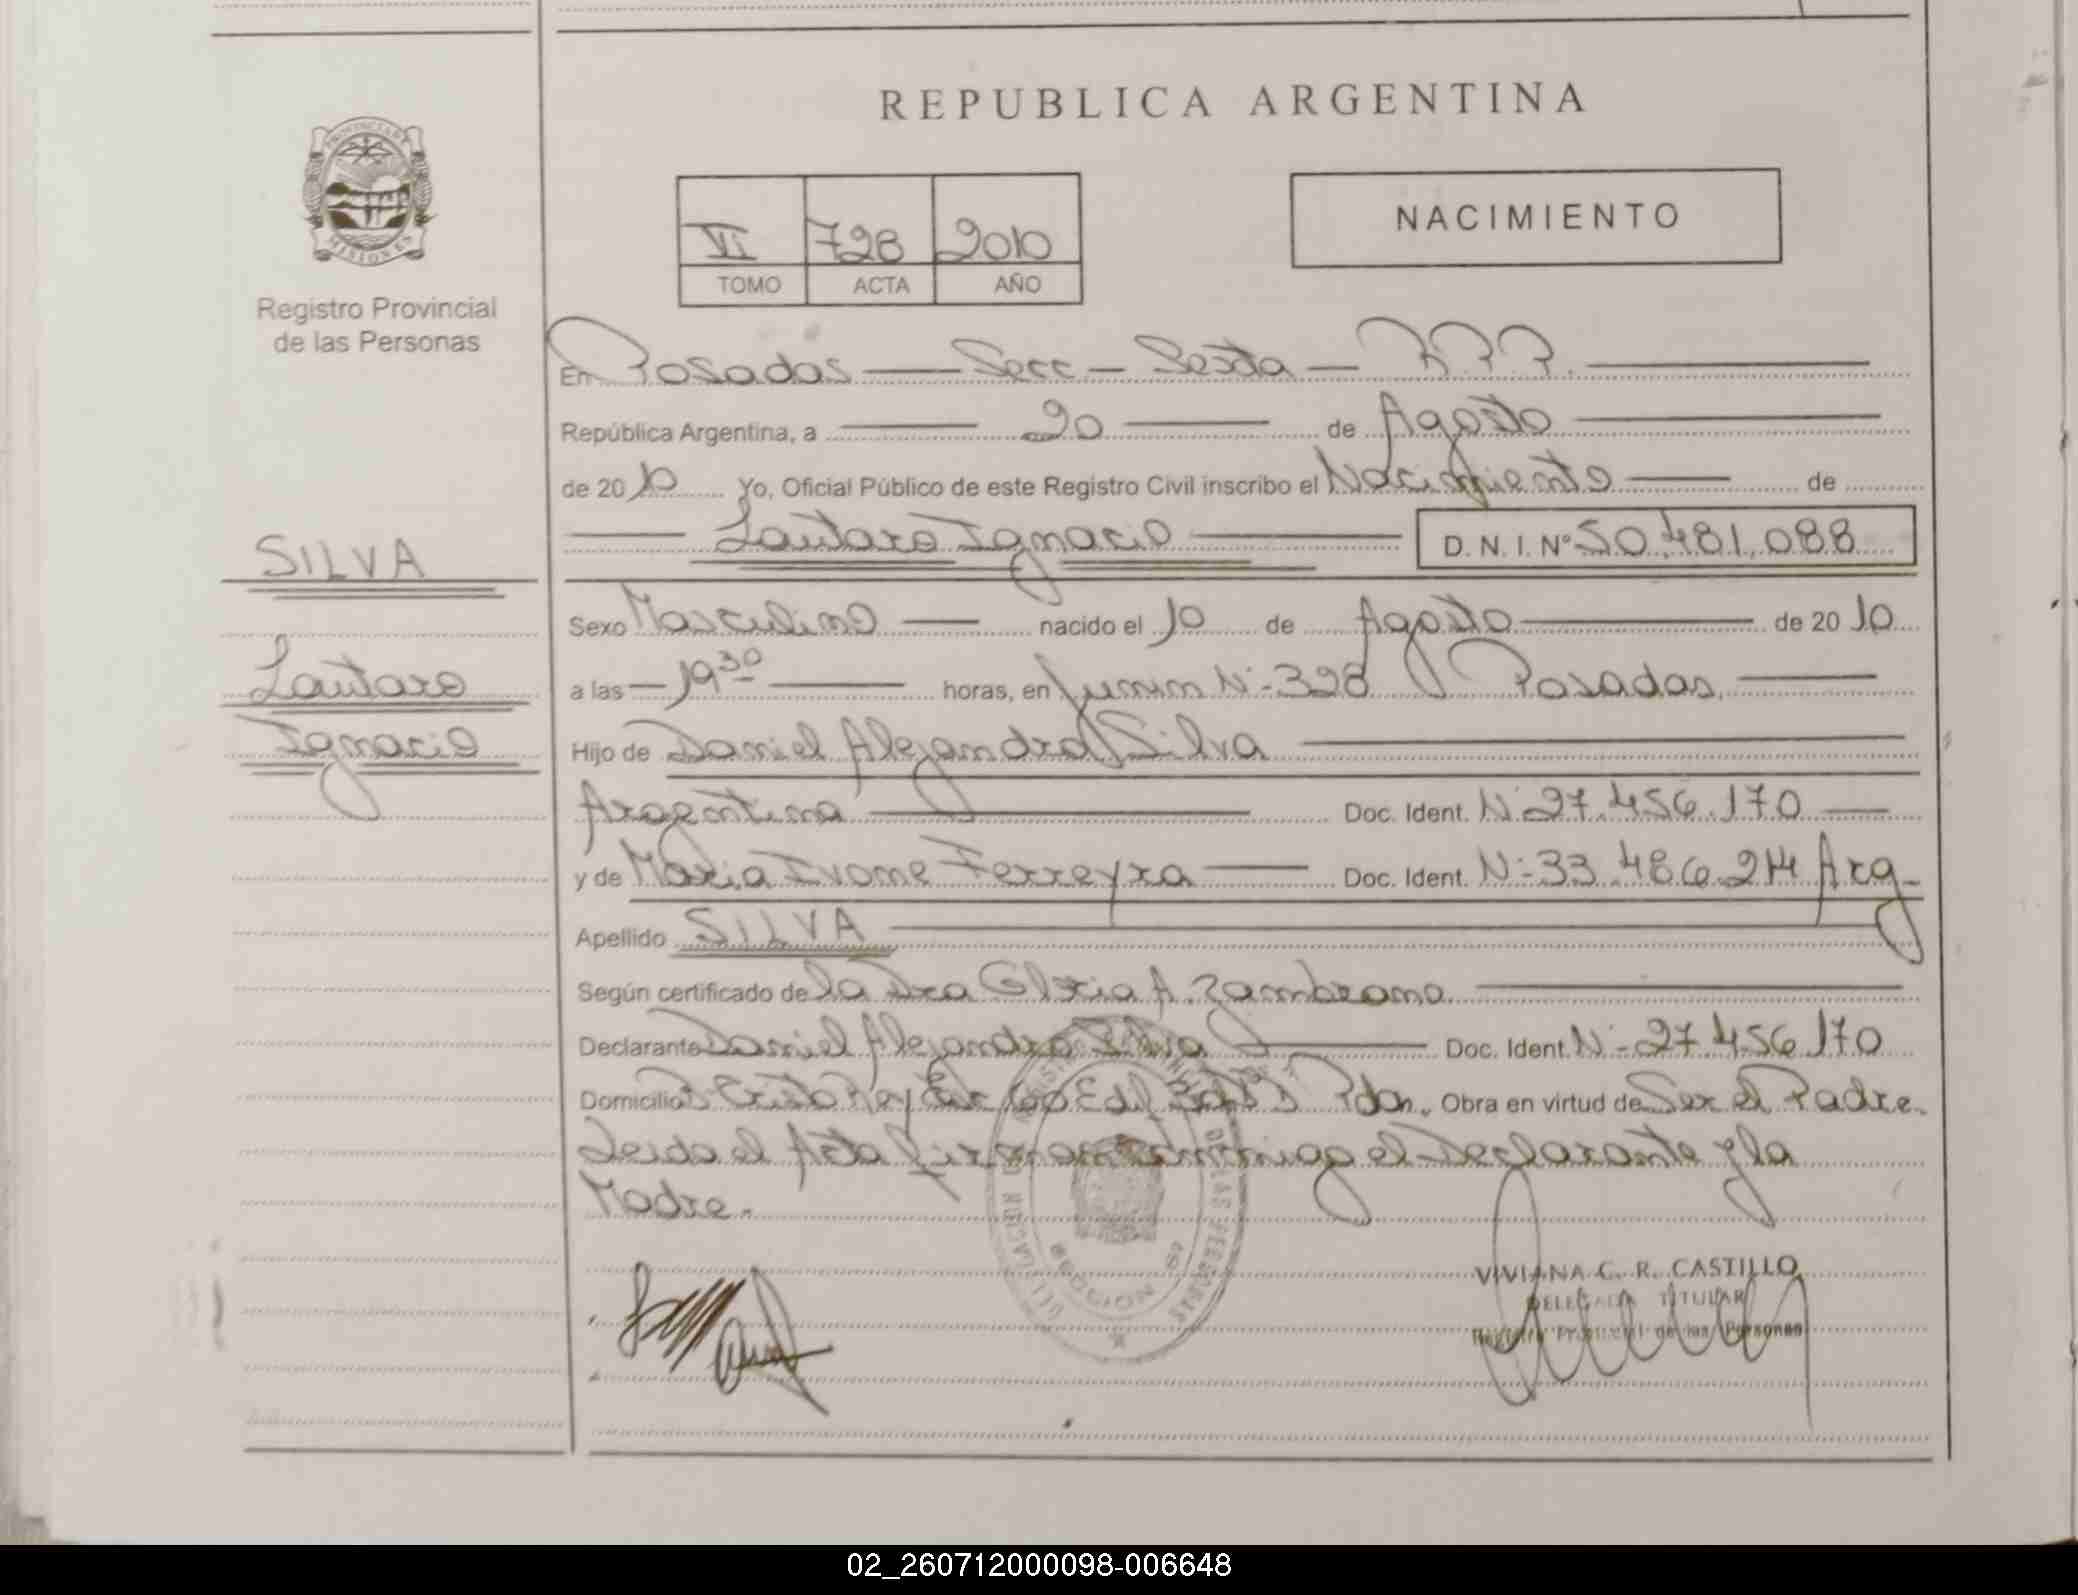 REPUBLICA ARGENTINA
PROVINCIA
MISIONES
Registro Provincial
de las Personas
VI 728 2010
TOMO ACTA AÑO
NACIMIENTO
En Posadas — Secc — Sexta — R.P.P.
República Argentina, a — 20 — de Agosto
de 2010 Yo, Oficial Público de este Registro Civil inscribo el Nacimiento — de
— Lautaro Ignacio — D.N.I. Nº 50.481.088
SILVA
Lautaro
Ignacio
Sexo Masculino — nacido el 10 de Agosto — de 2010
a las — 19 30 — horas, en Junin Nº 328 Posadas, —
Hijo de Daniel Alejandro Silva —
Argentina — Doc. Ident. Nº 27.456.170 —
y de Maria Ivone Ferreyra — Doc. Ident. Nº 33.486.214 Arg
Apellido SILVA —
Según certificado de la Dra Gloria A. Zambrano —
Declarante Daniel Alejandro Silva — Doc. Ident. Nº 27.456.170
Domicilio Pdas. Obra en virtud de Ser el Padre.
Leida el Acta firman conmigo el Declarante y la
Madre.
VIVIANA C. R. CASTILLO
DELEGADA TITULAR
Registro Provincial de las Personas
02_260712000098-006648